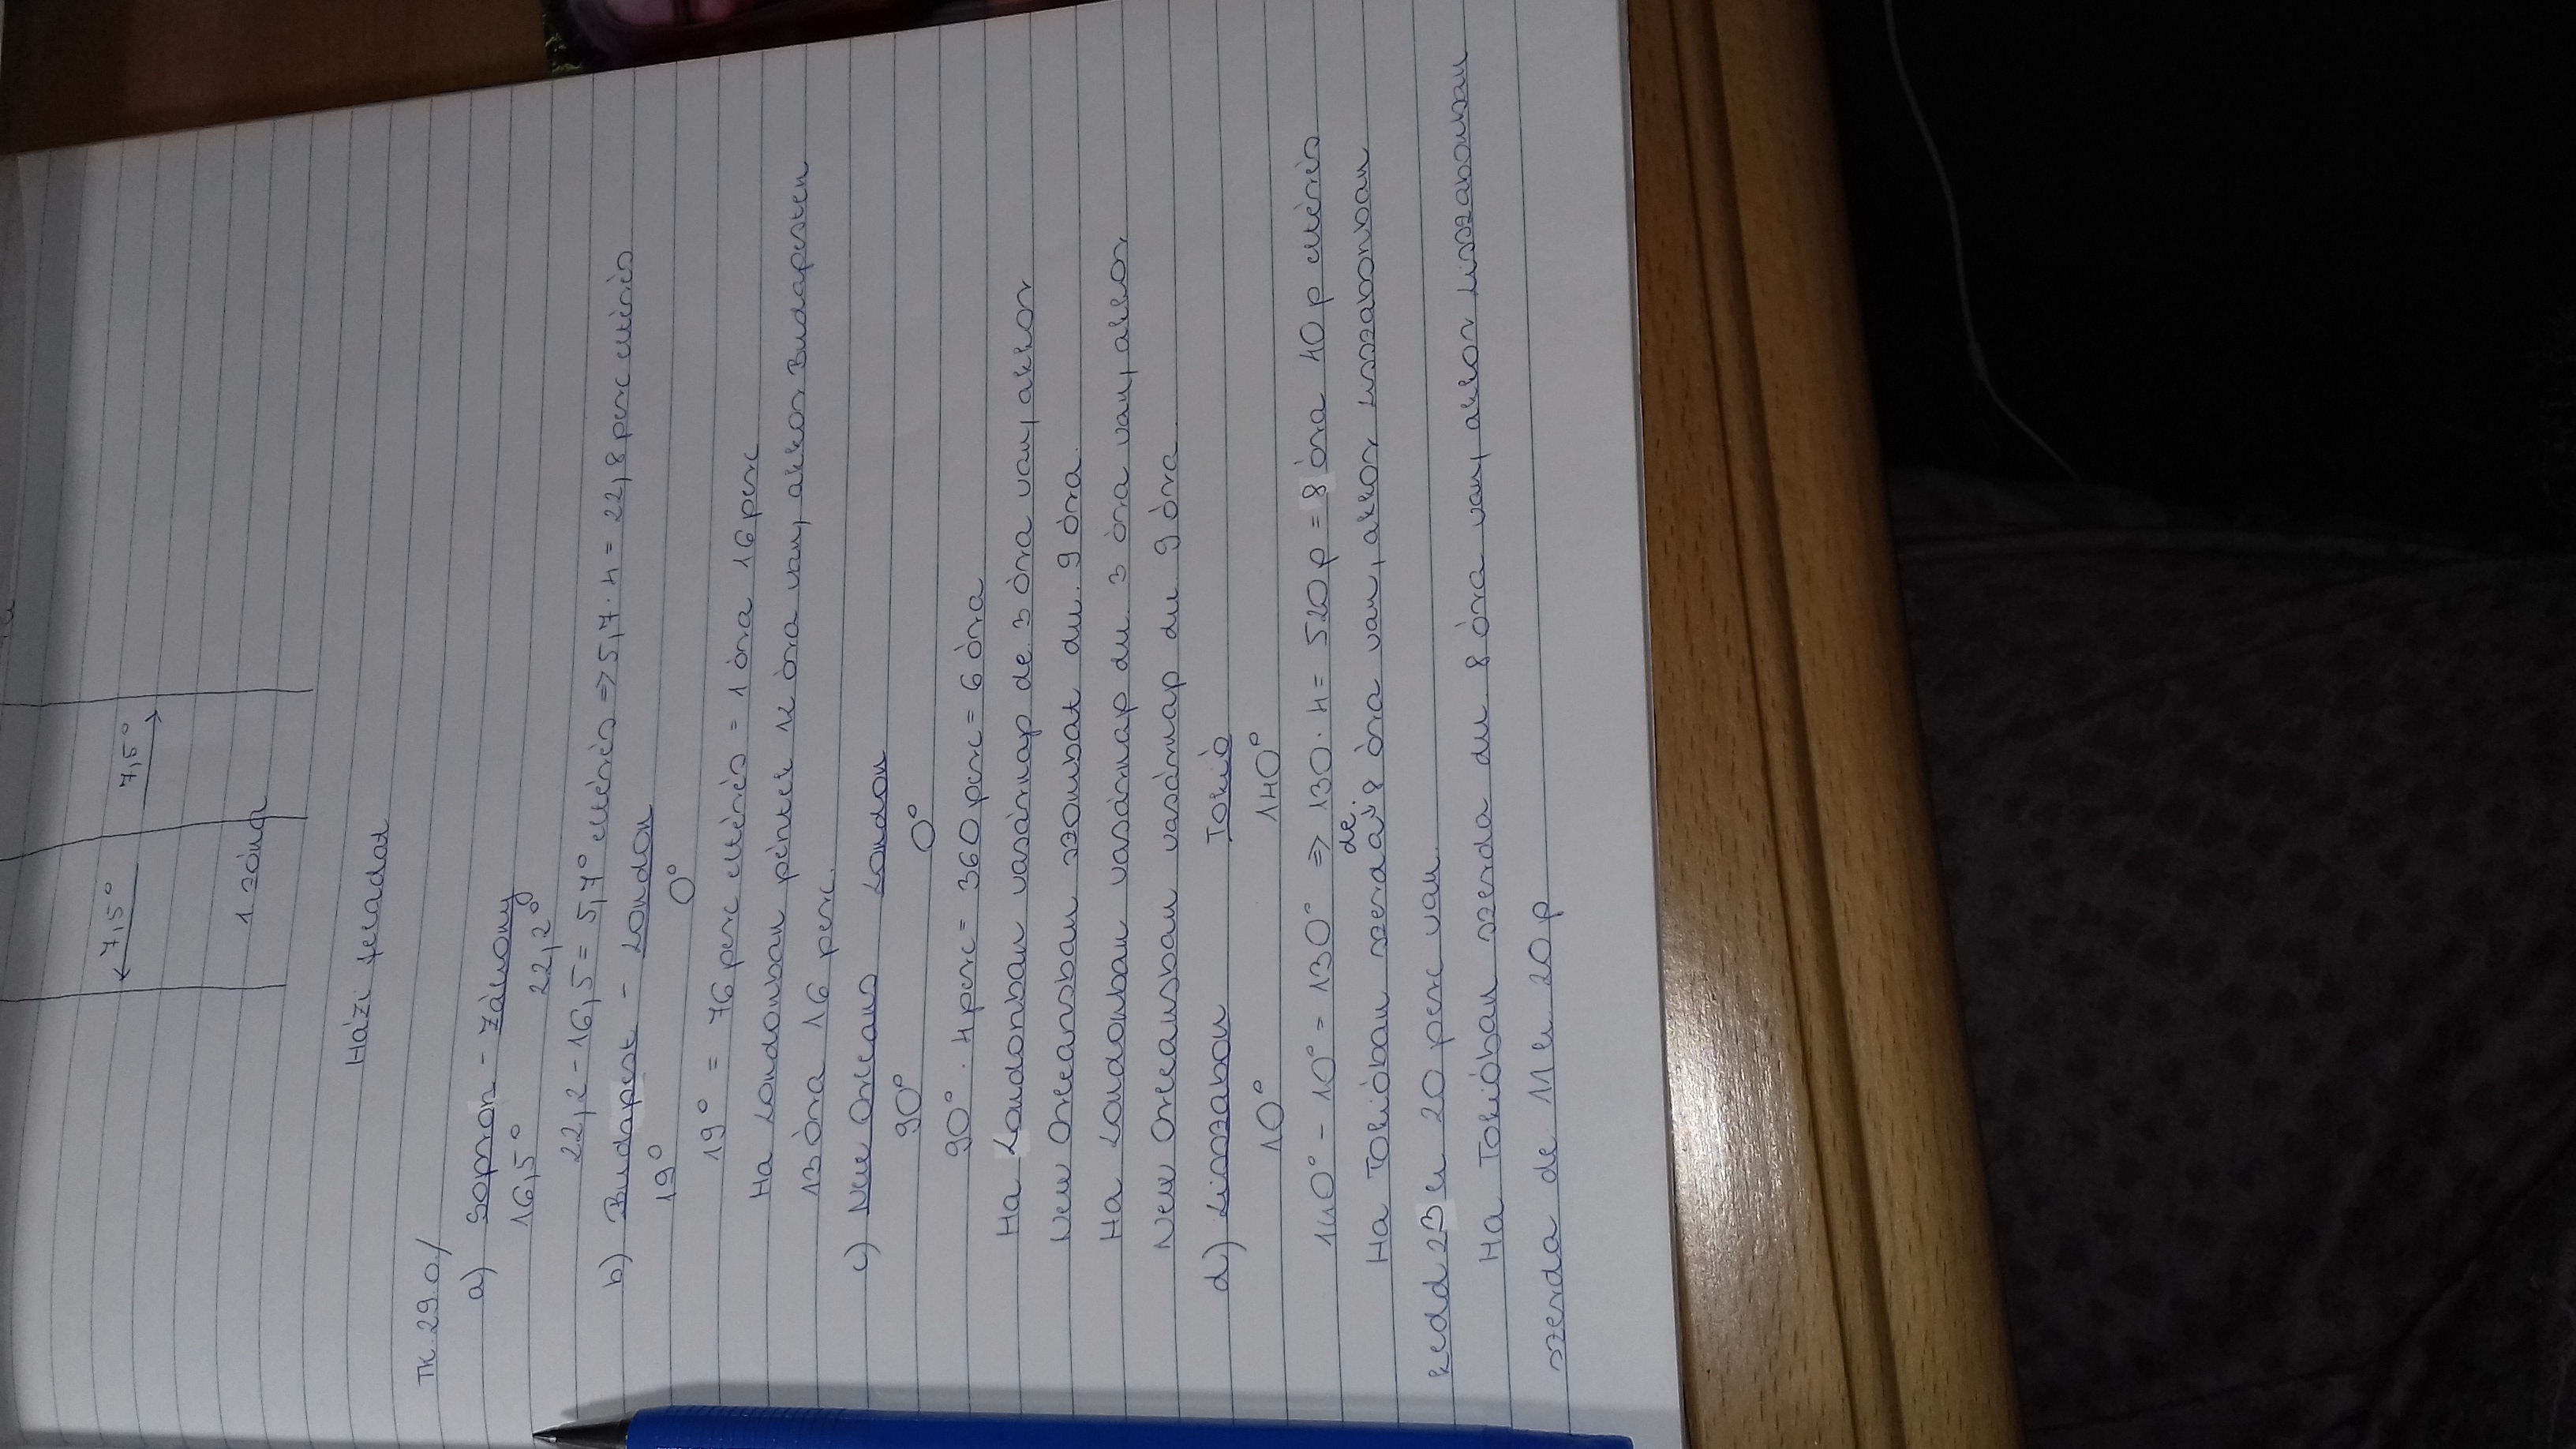 7,5° 7,5°
1. zóna
Házi feladat
TK. 29.o./
a) Sopron - Záhony
16,5° 22,2°
22,2 - 16,5 = 5,7° eltérés => 5,7 · 4 = 22,8 perc eltérés
b) Budapest - London
19° 0°
19° = 76 perc eltérés = 1 óra 16 perc
Ha Londonban péntek 12 óra van, akkor Budapesten
13 óra 16 perc.
c) New Orleans London
90° 0°
90° · 4 perc = 360 perc = 6 óra
Ha Londonban vasárnap de. 3 óra van, akkor
New Orleansban szombat du. 9 óra.
Ha Londonban vasárnap du. 3 óra van, akkor
New Orleansban vasárnap du 9 óra
d) Lisszabon Tokió
10° 140°
140° - 10° = 130° => 130 · 4 = 520 p = 8 óra 40 p eltérés
Ha Tokióban szerda de. 8 óra van, akkor Lisszabonban
kedd 23 h 20 perc van.
Ha Tokióban szerda du. 8 óra van, akkor Lisszabonban
szerda de 11 h 20 p